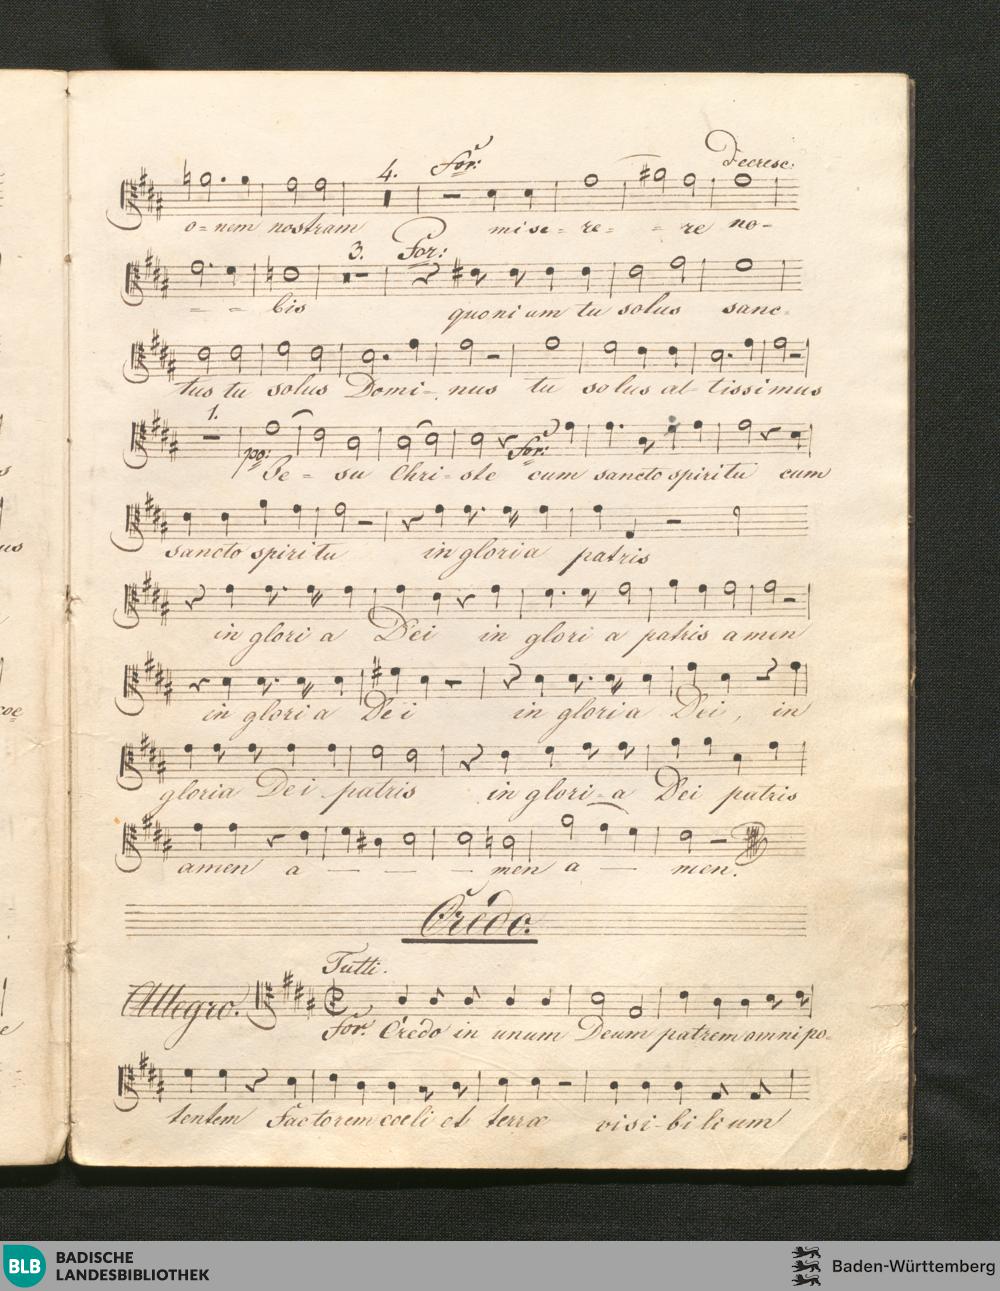 4. For: Decresc:
o=nem nostram mise=re= = re no-
3. For:
= = bis quoniam tu solus sanc-
tus tu solus Domi=nus tu solus al-tissimus
1. po: for:
Je = su Chri=ste cum sancto spiritu cum
sancto spiritu in gloria patris
in glori a Dei in glori a patris amen
in gloria Dei in gloria Dei, in
gloria Dei patris in glori=a Dei patris
amen a — — — — men a — men.
Credo.
Tutti.
Allegro. for: Credo in unum Deum patrem omnipo=
tentem Factorem coeli et terrae visi-bi li um
BLB BADISCHE LANDESBIBLIOTHEK
Baden-Württemberg